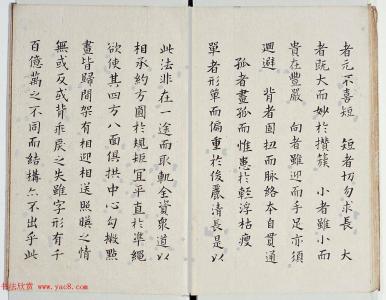 者元不喜短　短者切勿求長　大
者既大而妙於攢簇　小者雖小而
貴在豐嚴　向者雖迎而手足亦須
迴避　背者固扭而脉絡本自貫通
孤者畫孤而惟患於輕浮枯瘦
單者形單而偏重於俊麗清長是以
此法非在一途而取軌全資衆道以
相承約方圓於規矩宜平直於準繩
欲使其四方八面俱拱中心勾撇點
畫皆歸間架有相迎相送照暎之情
無或反或背乖戾之失雖字形有千
百億萬之不同而結構亦不出乎此
书法欣赏 www.yac8.com